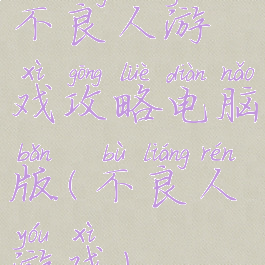 不良人游
xì gōng lüè diàn nǎo
戏攻略电脑
bǎn bù liáng rén
版(不良人
yóu xì
游戏)